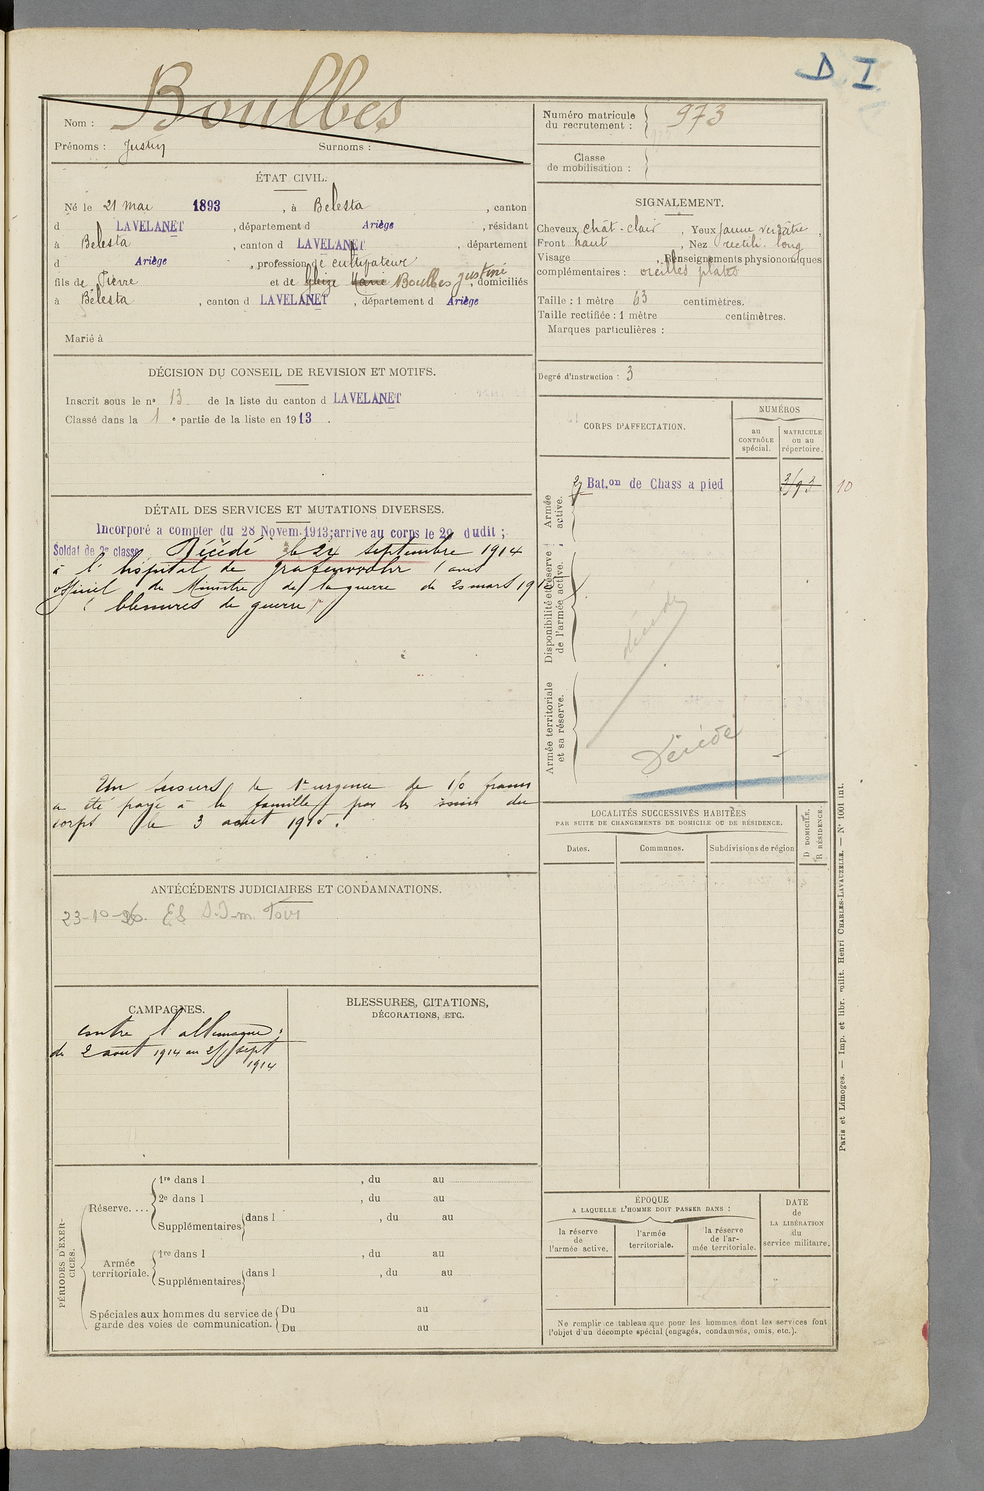 D I
Boulbes
Nom :
Prénoms : Justin Surnoms :
Numéro matricule du recrutement : 973
Classe de mobilisation :
ÉTAT CIVIL.
Né le 21 mai 1893, à Belesta, canton
d LAVELANET, département d Ariège, résidant
à Belesta, canton d LAVELANET, département
d Ariège, profession de cultivateur
fils de Pierre et de Marie Boulbes Justine, domiciliés
à Belesta, canton d LAVELANET, départemt d Ariège
Marié à
SIGNALEMENT.
Cheveux chât-clair, Yeux jaune verdâtre,
Front haut, Nez rectil. long
Visage, Renseignements physionomiques
complémentaires : oreilles plates
Taille : 1 mètre 63 centimètres.
Taille rectifiée : 1 mètre centimètres.
Marques particulières :
Degré d'instruction : 3
DÉCISION DU CONSEIL DE REVISION ET MOTIFS.
Inscrit sous le n° 13 de la liste du canton d LAVELANET
Classé dans la 1 e partie de la liste en 1913.
CORPS D'AFFECTATION.
NUMÉROS
au CONTRÔLE spécial.
MATRICULE ou au répertoire.
Armée active.
Bat.on de Chass a pied
10
Disponibilité et réserve de l'armée active.
décédé
Armée territoriale et sa réserve.
Décédé
DÉTAIL DES SERVICES ET MUTATIONS DIVERSES.
Incorporé a compter du 28 Novem. 1913; arrive au corps le 29 dudit ;
Soldat de 2e classe Décédé le 24 septembre 1914
à l'hôpital de Grafenwohr (avis
officiel du Ministre de la guerre du 2 mars 191
( blessures de guerre )
Un secours de 1re urgence de 150 francs
a été payé à la famille par les soins du
corps le 3 août 1915.
LOCALITÉS SUCCESSIVES HABITÉES
PAR SUITE DE CHANGEMENTS DE DOMICILE OU DE RÉSIDENCE.
Dates. Communes. Subdivisions de région
D DOMICILE.
R RÉSIDENCE.
ANTÉCÉDENTS JUDICIAIRES ET CONDAMNATIONS.
23-10-
CAMPAGNES.
contre l'allemagne :
du 2 août 1914 au sept
1914
BLESSURES, CITATIONS,
DÉCORATIONS, ETC.
PÉRIODES D'EXERCICES.
Réserve....
1re dans l , du au
2e dans l , du au
Supplémentaires dans l , du au
Armée territoriale.
1re dans l , du au
Supplémentaires dans l , du au
Spéciales aux hommes du service de garde des voies de communication.
Du au
Du au
ÉPOQUE
A LAQUELLE L'HOMME DOIT PASSER DANS :
la réserve de l'armée active.
l'armée territoriale.
la réserve de l'armée territoriale.
DATE de LA LIBÉRATION du service militaire.
Ne remplir ce tableau que pour les hommes dont les services font
l'objet d'un décompte spécial (engagés, condamnés, omis, etc.).
Paris et Limoges. — Imp. et libr. milit. Henri CHARLES-LAVAUZELLE. — N° 1001 int.